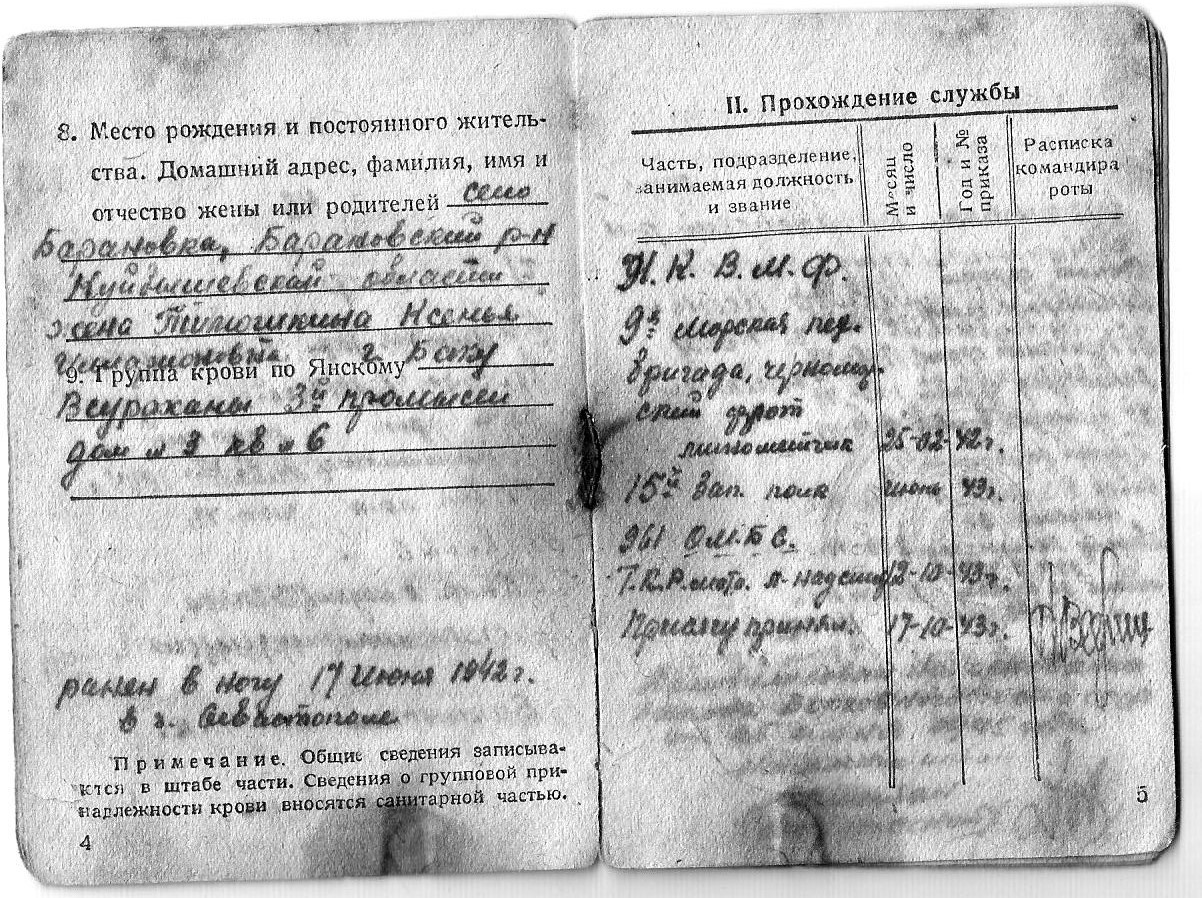 8. Место рождения и постоянного житель-
ства. Домашний адрес, фамилия, имя и
отчество жены или родителей село
Барановка, Барановский р-н
Куйбышевской области
жена Тимошкина Ксенья
9. Группа крови по Янскому г. Баку
3й промысел
дом № 3 кв № 6
ранен в ногу 17 Июня 1942 г.
в г. Севастополе
Примечание. Общие сведения записыва-
ются в штабе части. Сведения о групповой при-
надлежности крови вносятся санитарной частью.
4
II. Прохождение службы
Часть, подразделение, занимаемая должность и звание
Месяц и число
Год и № приказа
Расписка командира роты
Н. К. В. М. Ф.
9я Морская пех.
бригада, черномор-
ский флот
минометчик 25-02-42 г.
15й Зап. полк июнь 43 г.
961 О.М.Б С.
12-10-43 г.
Присягу принял. 17-10-43 г.
5